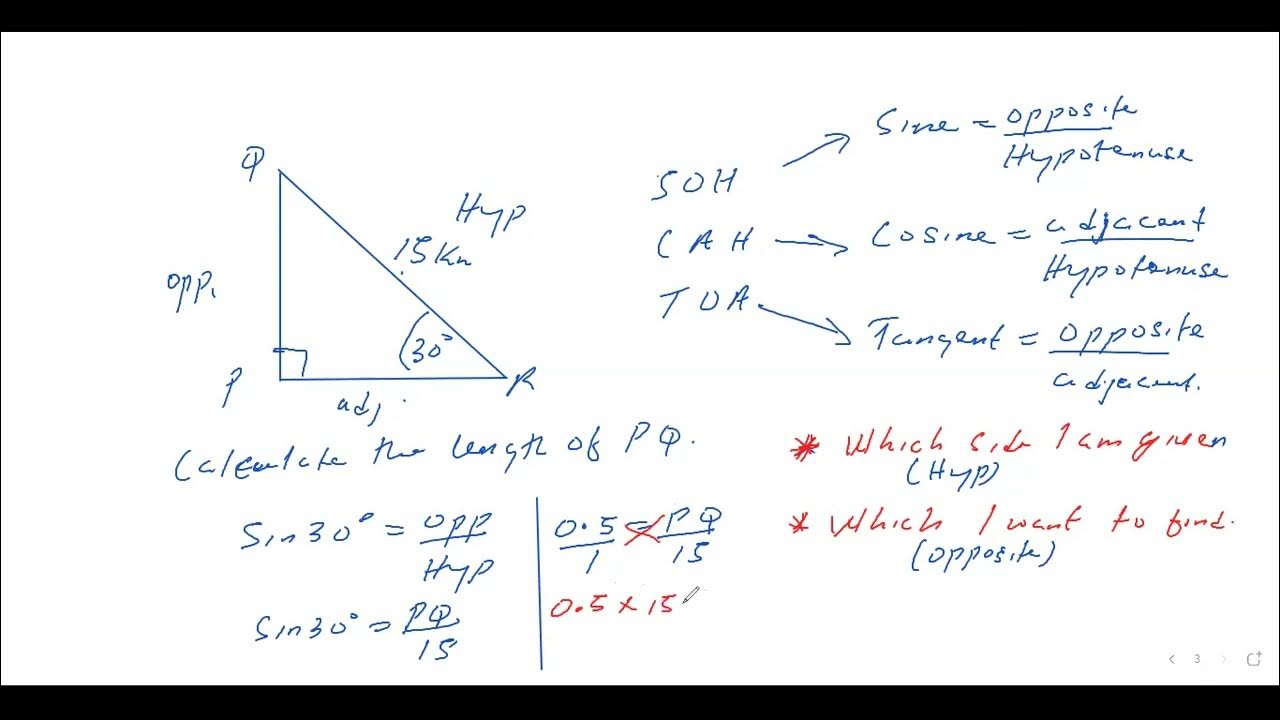 Q
Hyp
15Km
opp.
30°
P
R
adj.
SOH
CAH
TOA
Sine = opposite / Hypotenuse
Cosine = adjacent / Hypotenuse
Tangent = opposite / adjacent.
Calculate the length of PQ.
* Which side I am given
(Hyp)
* Which I want to find.
(opposite)
Sin30° = opp / Hyp
Sin30° = PQ / 15
0.5 / 1 = PQ / 15
0.5 × 15
3